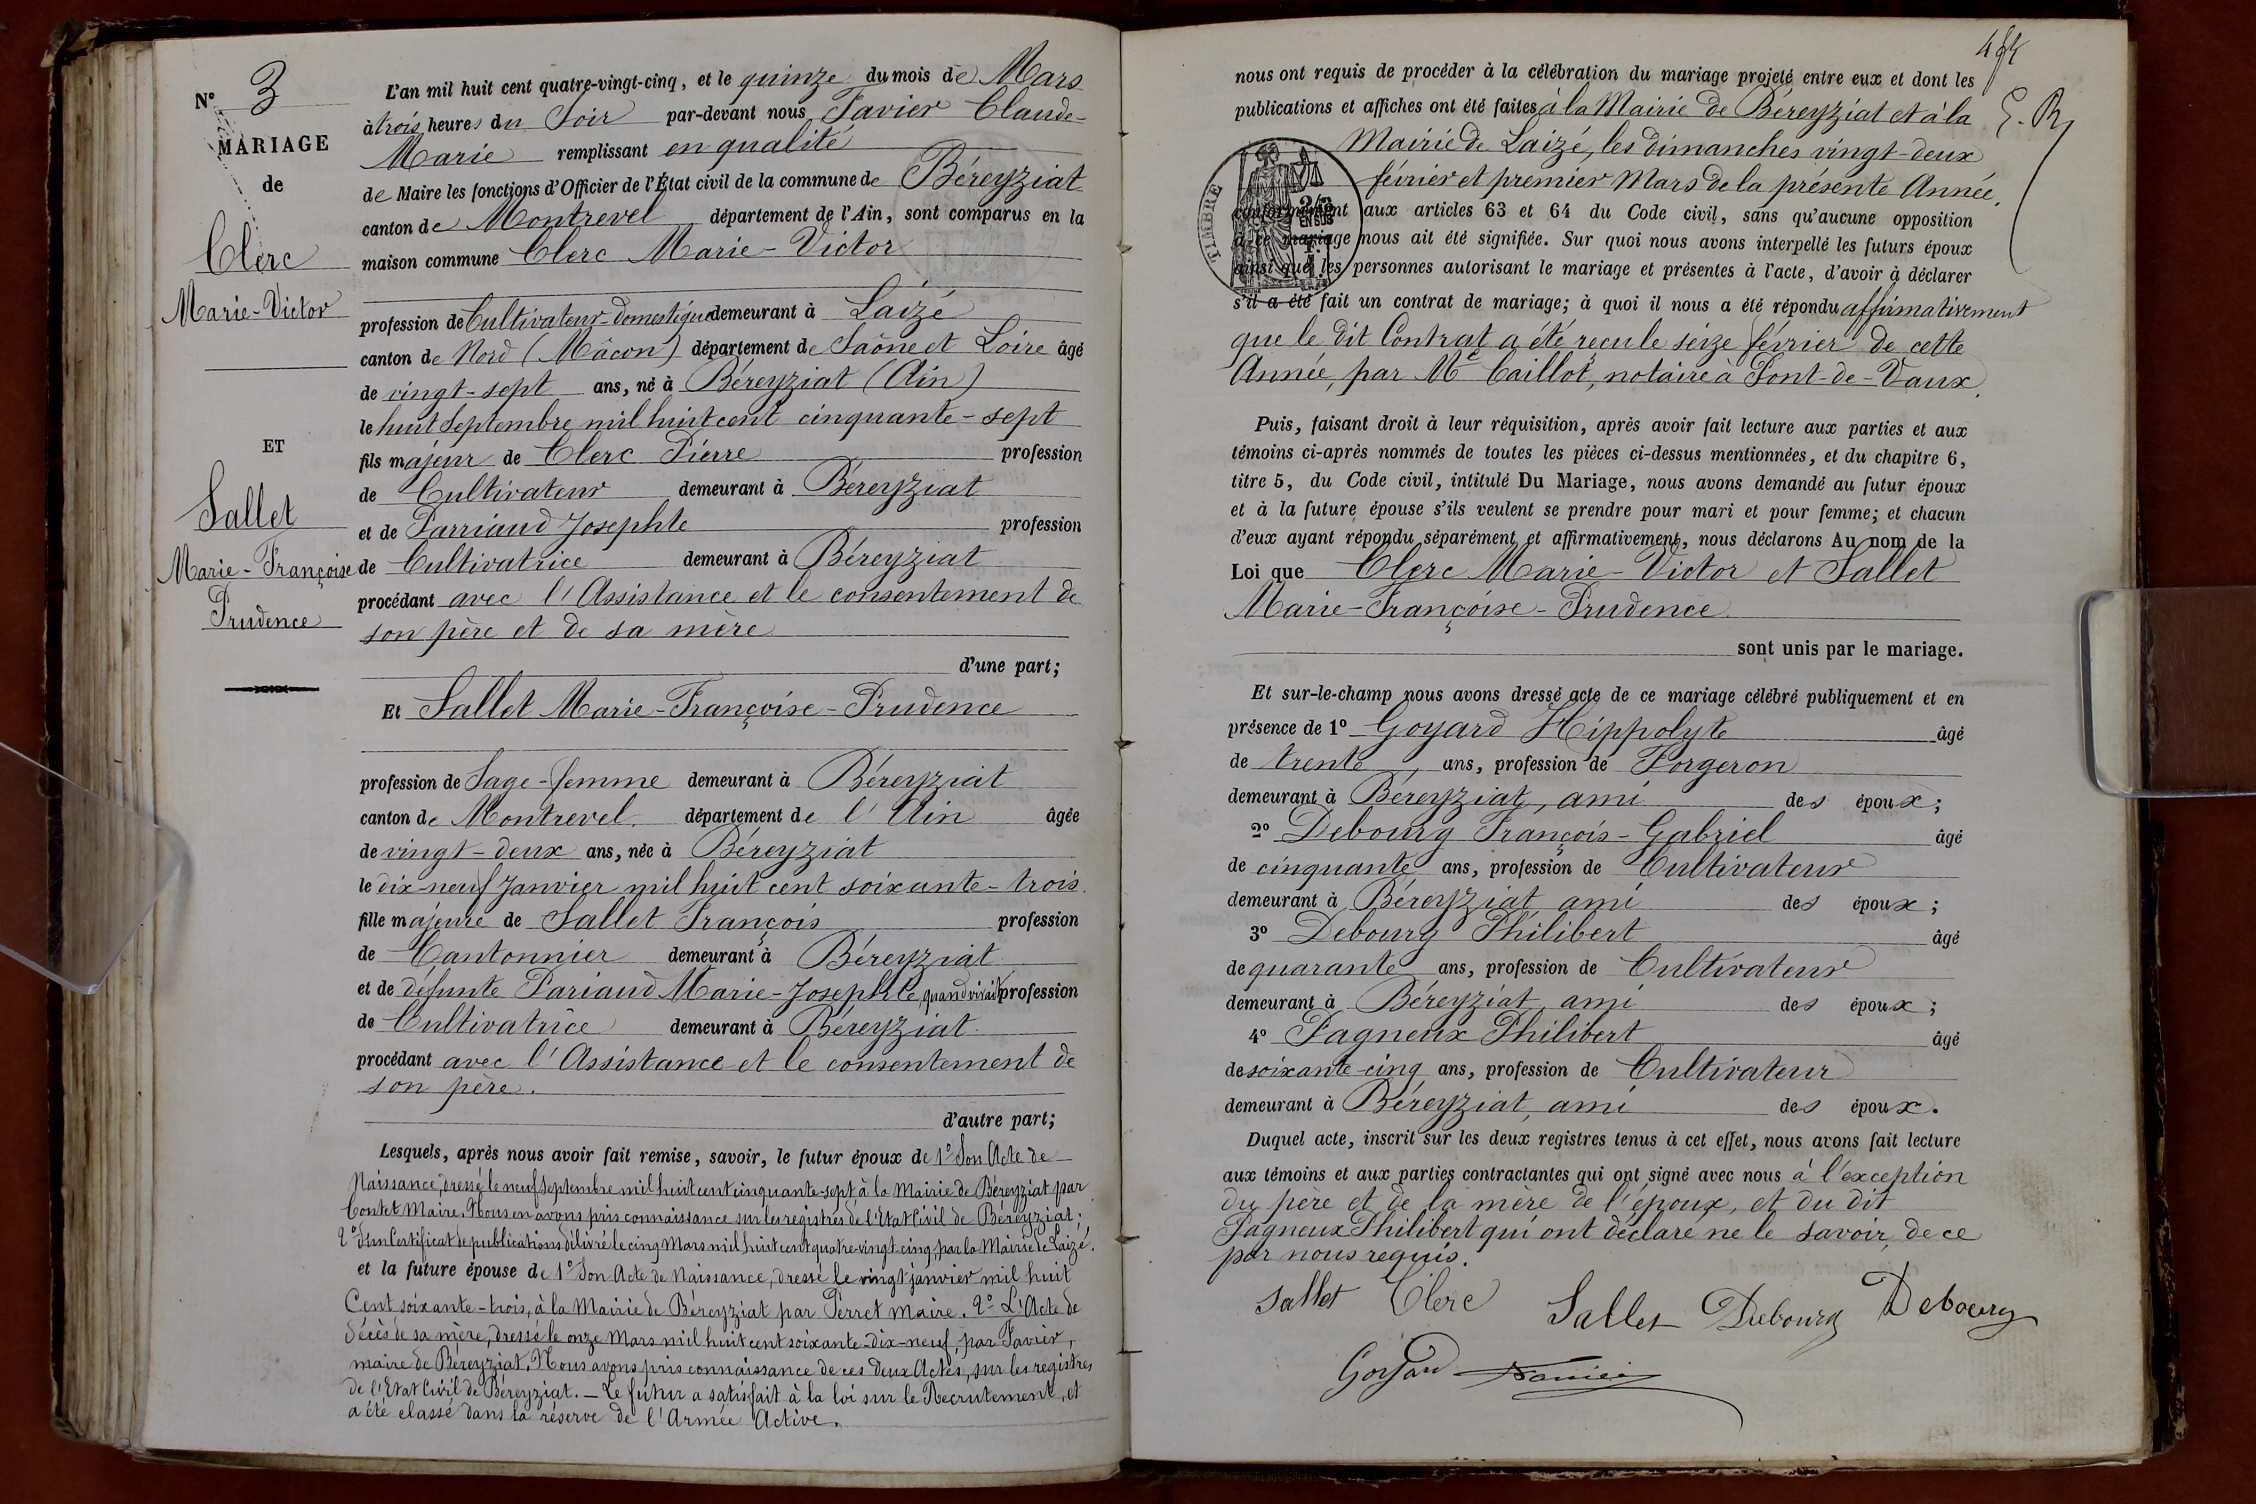 Nº 3
MARIAGE
de
Clerc
Marie-Victor
ET
Sallet
Marie-Françoise
Prudence
L'an mil huit cent quatre-vingt-cinq, et le quinze du mois de Mars
à trois heures du Soir par-devant nous Favier Claude-
Marie remplissant en qualité
de Maire les fonctions d'Officier de l'État civil de la commune de Béreyziat
canton de Montrevel département de l'Ain, sont comparus en la
maison commune Clerc Marie-Victor
profession de Cultivateur-domestique demeurant à Laizé
canton de Nord (Mâcon) département de Saône et Loire âgé
de vingt-sept ans, né à Béreyziat (Ain)
le huit Septembre mil huit cent cinquante-sept
fils majeur de Clerc Pierre profession
de Cultivateur demeurant à Béreyziat
et de Parriaud Josephte profession
de Cultivatrice demeurant à Béreyziat
procédant avec l'Assistance et le consentement de
son père et de sa mère
d'une part;
Et Sallet Marie-Françoise-Prudence
profession de Sage-femme demeurant à Béreyziat
canton de Montrevel département de l'Ain âgée
de vingt-deux ans, née à Béreyziat
le dix-neuf Janvier mil huit cent soixante-trois
fille majeure de Sallet François profession
de Cantonnier demeurant à Béreyziat
et de défunte Pariaud Marie-Josephte, quand vivait profession
de Cultivatrice demeurant à Béreyziat
procédant avec l'Assistance et le consentement de
son père.
d'autre part;
Lesquels, après nous avoir fait remise, savoir, le futur époux de 1º Son Acte de
Naissance, dressé le neuf Septembre mil huit cent cinquante-sept à la Mairie de Béreyziat par
Contet Maire. Nous en avons pris connaissance sur les registres de l'Etat Civil de Béreyziat;
2º d'un Certificat de publications délivré le cinq Mars mil huit cent quatre-vingt-cinq, par la Mairie de Laizé.
et la future épouse de 1º Son Acte de Naissance, dressé le vingt janvier mil huit
Cent soixante-trois, à la Mairie de Béreyziat par Perret maire. 2º L'Acte de
décès de sa mère, dressé le onze Mars mil huit cent soixante-dix-neuf, par Favier,
maire de Béreyziat. Nous avons pris connaissance de ces deux Actes, sur les registres
de l'Etat Civil de Béreyziat. — Le futur a satisfait à la loi sur le Recrutement, et
a été classé dans la réserve de l'Armée Active.
nous ont requis de procéder à la célébration du mariage projeté entre eux et dont les
publications et affiches ont été faites à la Mairie de Béreyziat et à la
Mairie de Laizé, les dimanches vingt-deux
février et premier Mars de la présente Année,
conformément aux articles 63 et 64 du Code civil, sans qu'aucune opposition
à ce mariage nous ait été signifiée. Sur quoi nous avons interpellé les futurs époux
ainsi que les personnes autorisant le mariage et présentes à l'acte, d'avoir à déclarer
s'il a été fait un contrat de mariage; à quoi il nous a été répondu affirmativement
que le dit Contrat a été reçu le seize février de cette
Année, par Me Caillot, notaire à Pont-de-Vaux.
TIMBRE
2/10
EN SUS
Puis, faisant droit à leur réquisition, après avoir fait lecture aux parties et aux
témoins ci-après nommés de toutes les pièces ci-dessus mentionnées, et du chapitre 6,
titre 5, du Code civil, intitulé Du Mariage, nous avons demandé au futur époux
et à la future épouse s'ils veulent se prendre pour mari et pour femme; et chacun
d'eux ayant répondu séparément et affirmativement, nous déclarons Au nom de la
Loi que Clerc Marie-Victor et Sallet
Marie-Françoise-Prudence
sont unis par le mariage.
Et sur-le-champ nous avons dressé acte de ce mariage célébré publiquement et en
présence de 1º Goyard Hippolyte âgé
de trente ans, profession de Forgeron
demeurant à Béreyziat, ami des époux;
2º Debourg François-Gabriel âgé
de cinquante ans, profession de Cultivateur
demeurant à Béreyziat ami des époux;
3º Debourg Philibert âgé
de quarante ans, profession de Cultivateur
demeurant à Béreyziat, ami des époux;
4º Pagneux Philibert âgé
de soixante-cinq ans, profession de Cultivateur
demeurant à Béreyziat, ami des époux.
Duquel acte, inscrit sur les deux registres tenus à cet effet, nous avons fait lecture
aux témoins et aux parties contractantes qui ont signé avec nous à l'exception
du père et de la mère de l'époux, et du dit
Pagneux Philibert qui ont déclaré ne le savoir, de ce
par nous requis.
Sallet Clerc Sallet Debourg Debourg
Goyard Favier